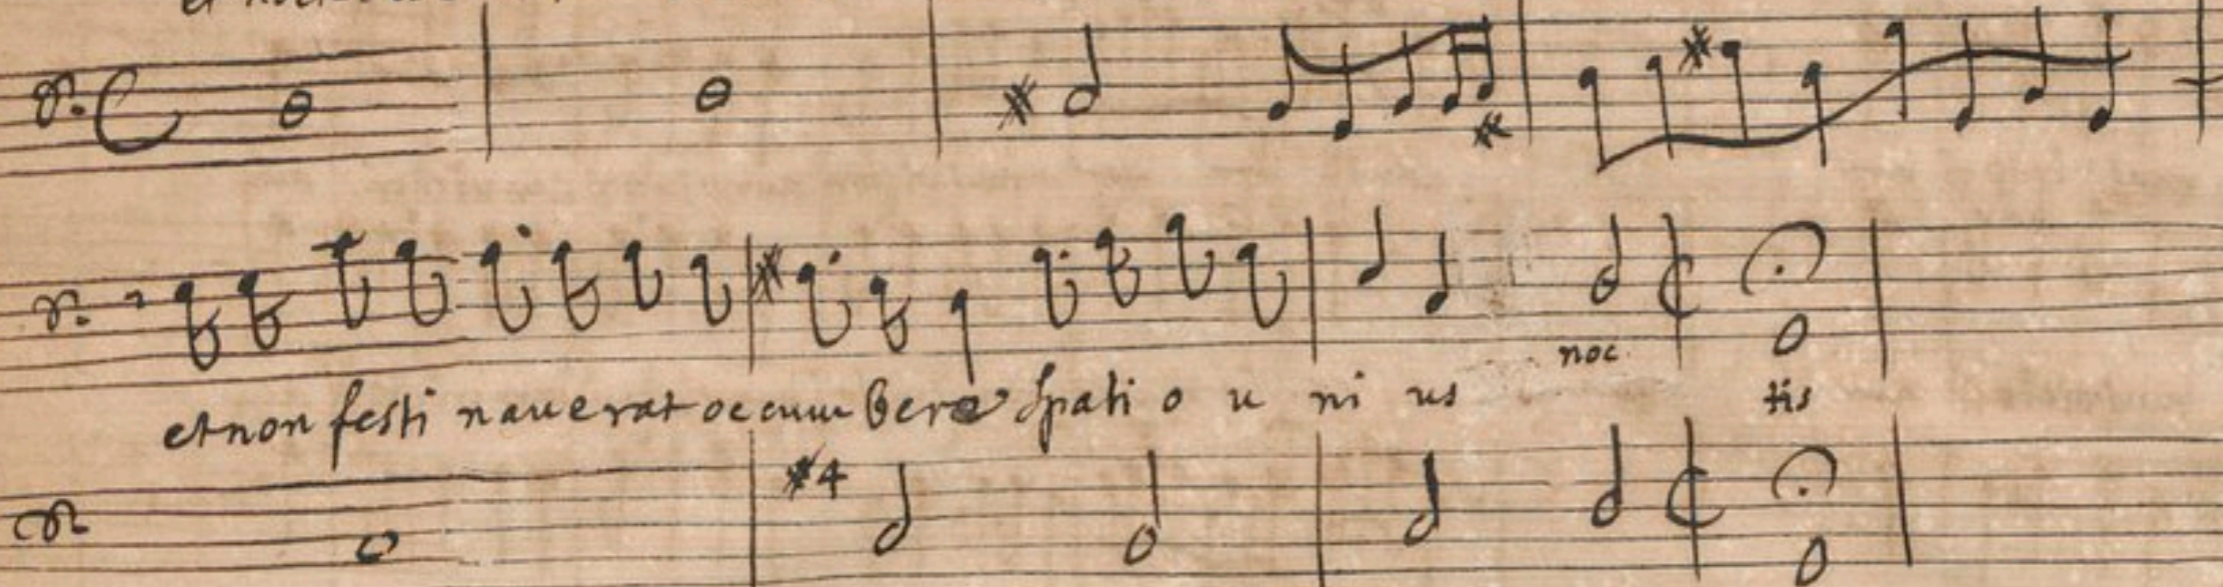 et non festi naue rat oc cum bere spati o u ni us noc tis
#4